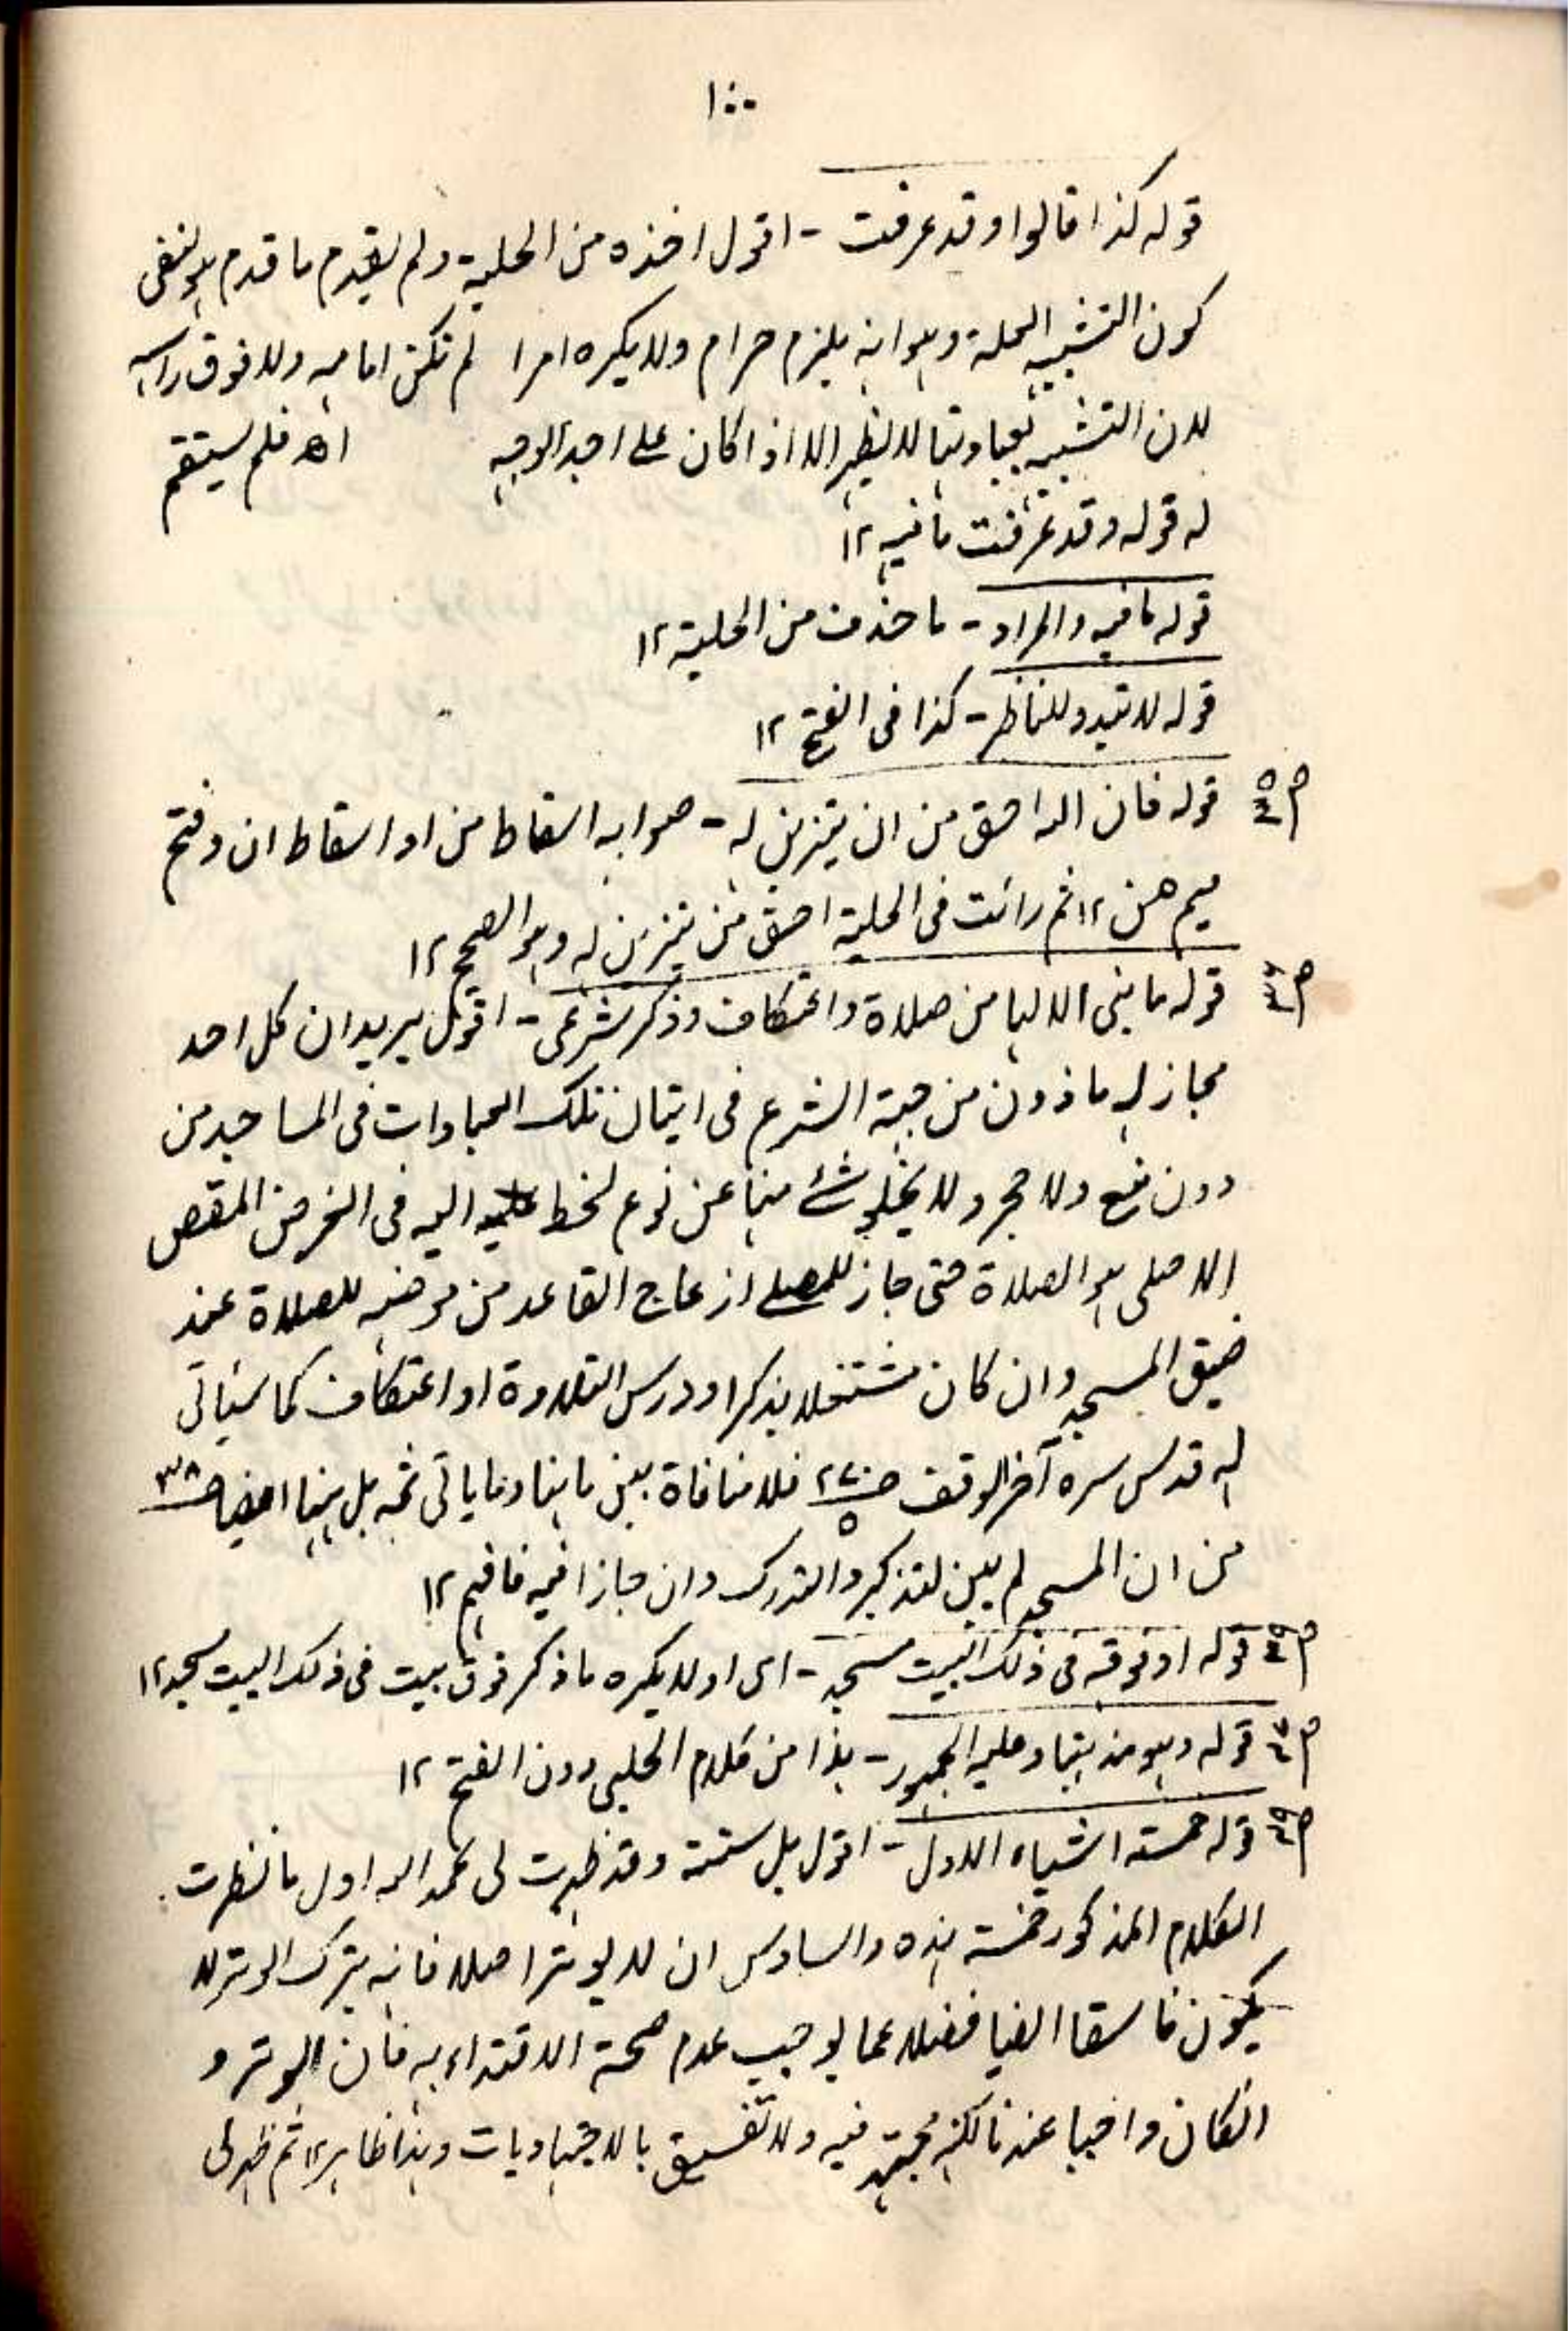 ١٠٠
قوله كذا قالوا وقد عرفت - اقول اخذه من الحلية ولم يقدم ما قدم هو لنفى
كون التشبه العلة وهو انه يلزم حرام ولا يكره امرا لم تكن امامه ولا فوق راسه
لان التشبه بعبادتها لا يظهر الا اذا كان على احد الوجه اھ فلم يستقم
له قوله وقد عرفت ما فيه ١٢
قوله ما فيه والمراد - ماخذت من الحلية ١٢
قوله لا تبدو للناظر - كذا فى الفتح ١٢
قوله فان الله احق من ان يتزين له - صوابه اسقاط من او اسقاط ان وفتح
ميم من ١٢ ثم رائت فى الحلية احق من يتزين له وهو الصحيح ١٢
قوله ما بنى الا لها من صلاة واعتكاف وذكر شرعى - اقول يريد ان كل احد
مجاز له ماذون من جهة الشرع فى اتيان تلك العبادات فى المساجد من
دون منع ولا حجر ولا يخلو شئ منها عن نوع لحظ اليه فى الغرض المقص
الاصلى هو الصلاة حتى جاز للمصلى ازعاج القاعد من موضعه للصلاة عند
ضيق المسجد وان كان مشتغلا بذكر او درس التلاوة او اعتكاف كما سياتى
له قدس سره آخر الوقف فلا منافاة بين ما هنا وما ياتى ثمه بل هنا ايضا ص٣٨
من ان المسجد لم يبن لتذكير والتدرس وان جازا فيه فافهم ١٢
قوله او فوقه فى ذلك البيت مسجد - اى او لا يكره ما ذكر فوق بيت فى ذلك البيت مسجد ١٢
قوله وهو مذهبنا وعليه الجمهور - هذا من كلام الحلبى دون الفتح ١٢
قوله خمسة اشياء الاول - اقول بل ستة وقد ظهرت لى بحمد الله اول ما نظرت
الكلام المذكور خمسة هذه والسادس ان لا يوتر اصلا فانه بترك الوتر لا
يكون فاسقا ايضا فضلا عما يوجب عدم صحة الاقتداء به فان الوتر و
انكان واجبا عندنا لكنه مجتهد فيه ولا تفسيق بالاجتهاديات وهذا ظاهر ١٢ ثم ظهر لى